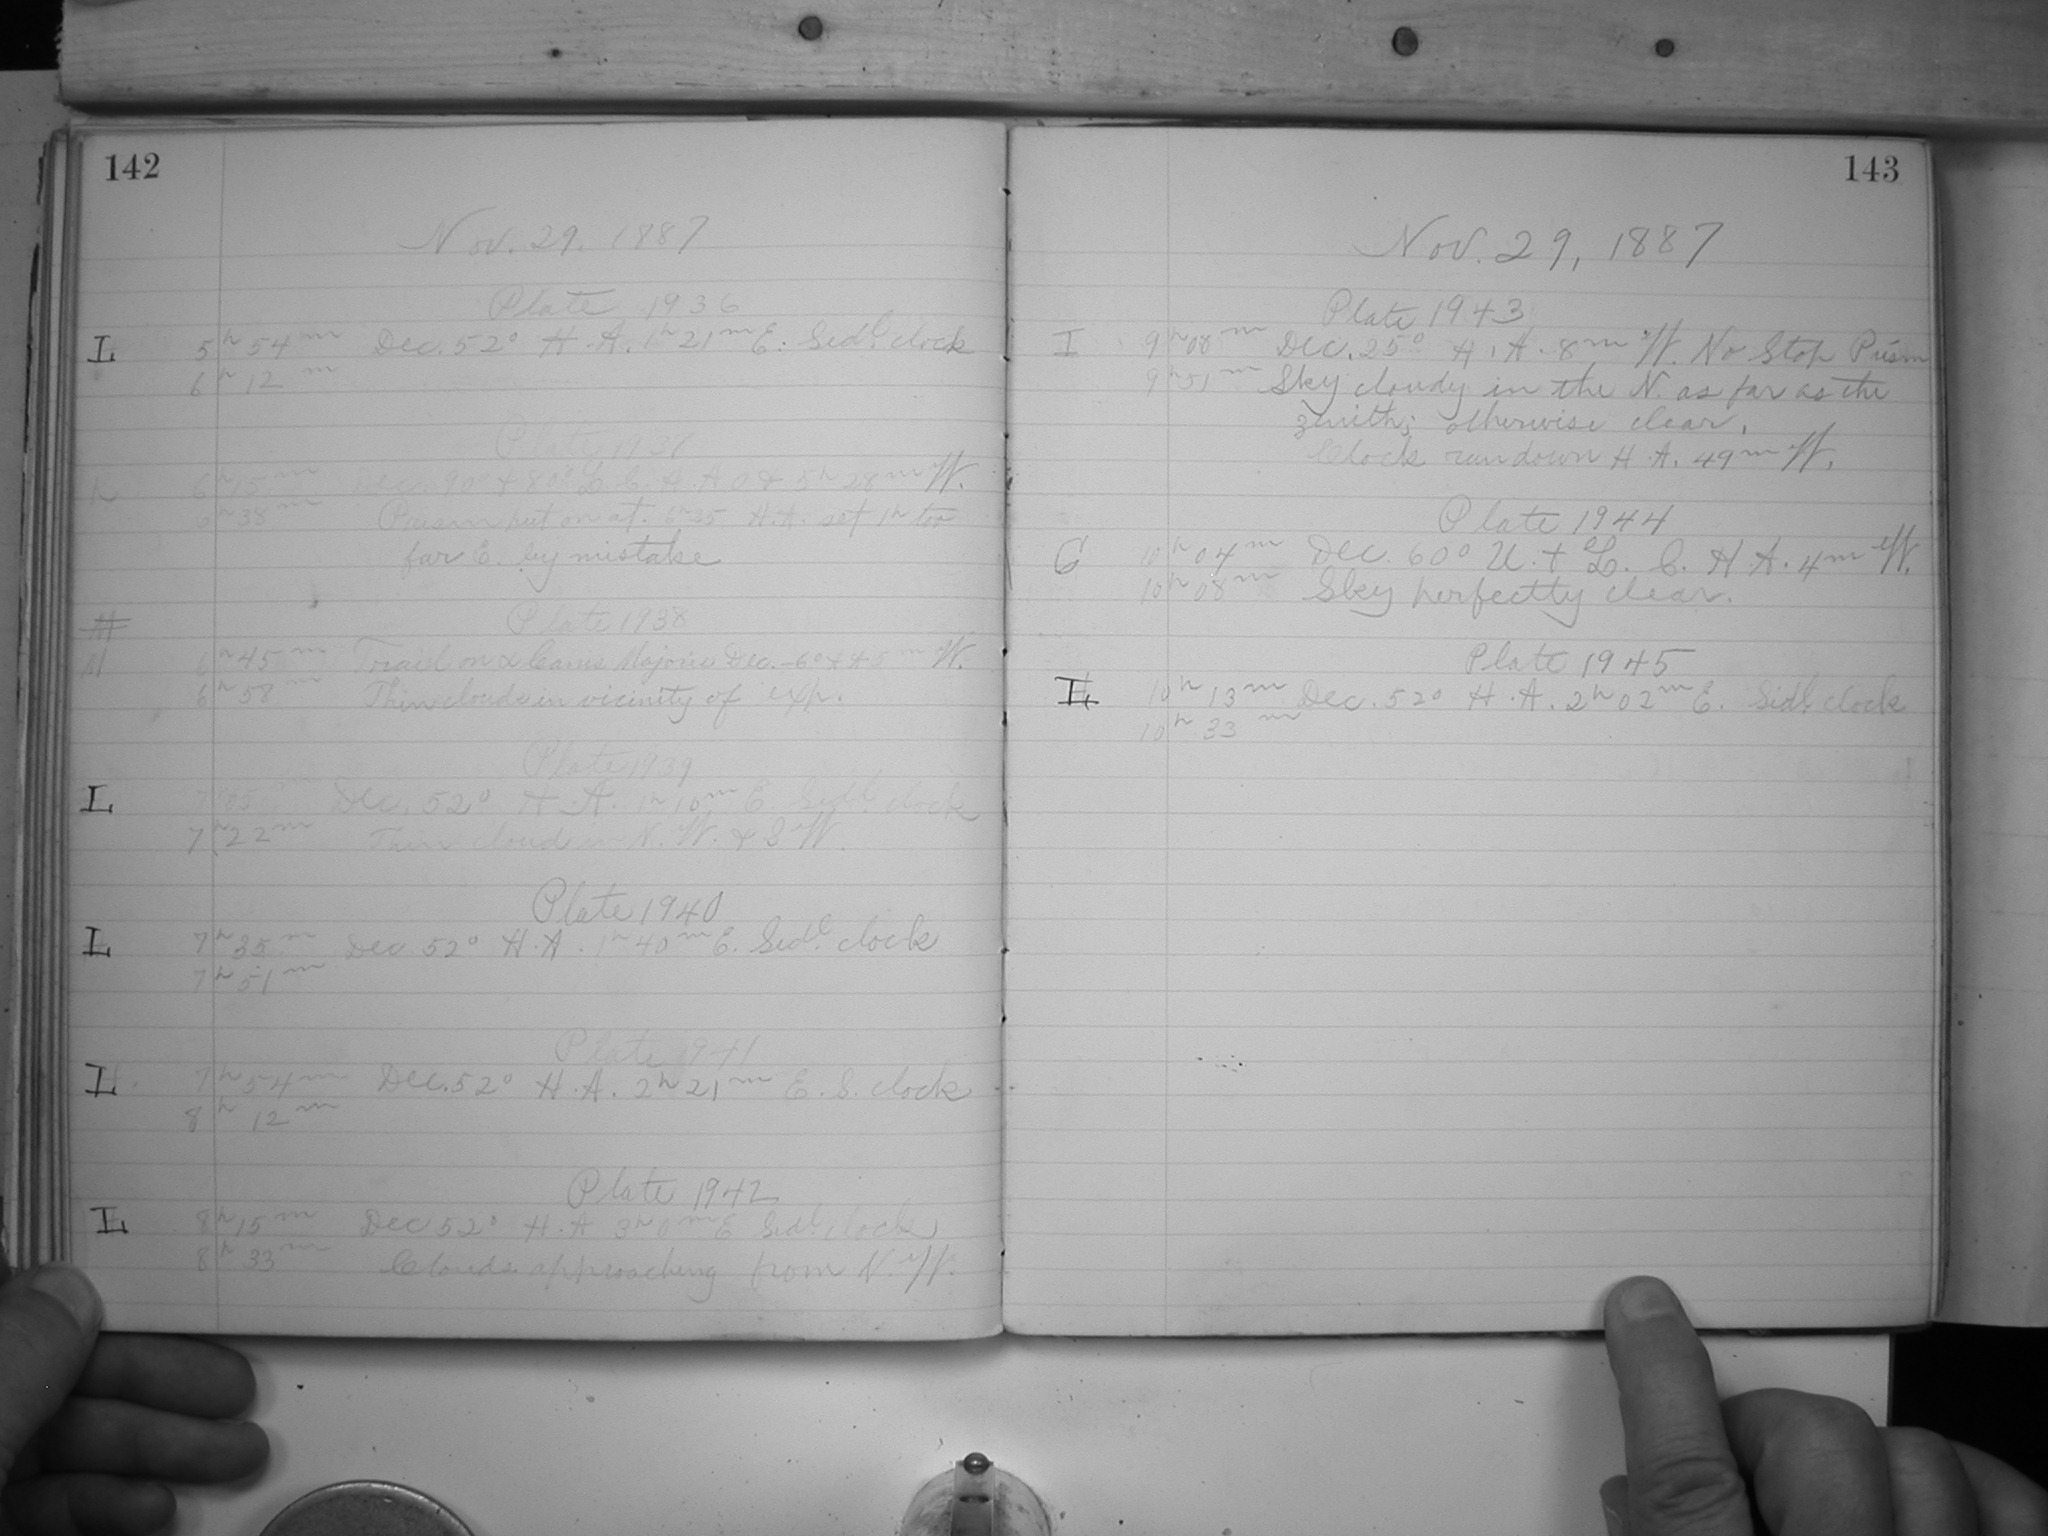 142
Nov. 29. 1887
Plate 1936
L 5h 54m Dec. 52° H.A. 1h 21m E. Sidl. clock
6h 12m
Plate 1937
6h 15m Dec. 90° + 80° L.C. H.A 0 & 5h 28m W.
6h 38m Prism put on at 6h 35 H.A. set 1h too
far E. by mistake
Plate 1938
6h 45m on α Canis Majoris Dec.
6h 58m Thin clouds in vicinity of exp.
Plate 1939
L 7h 05m Dec. 52° H.A. 1h 10m E. Sidl. clock
7h 22m Thin clouds in N.W. & S.W.
Plate 1940
L 7h 35m Dec. 52° H.A. 1h 40m E. Sidl. clock
7h 51m
Plate 1941
L 7h 54m Dec. 52° H.A. 2h 21m E. S. clock
8h 12m
Plate 1942
L 8h 15m Dec 52° H.A 3h 0m E Sidl. clock
8h 33m Clouds approaching from N.W.
143
Nov. 29, 1887
Plate 1943
I 9h 08m Dec. 25° H.A. 8m W. No Stop Prism
9h 51m Sky cloudy in the N. as far as the
zenith; otherwise clear.
Clock run down H.A. 49m W.
Plate 1944
G 10h 04m Dec. 60° U. + L. C. H.A. 4m W.
10h 08m Sky perfectly clear.
Plate 1945
10h 13m Dec. 52° H.A. 2h 02m E. Sidl. clock
10h 33m